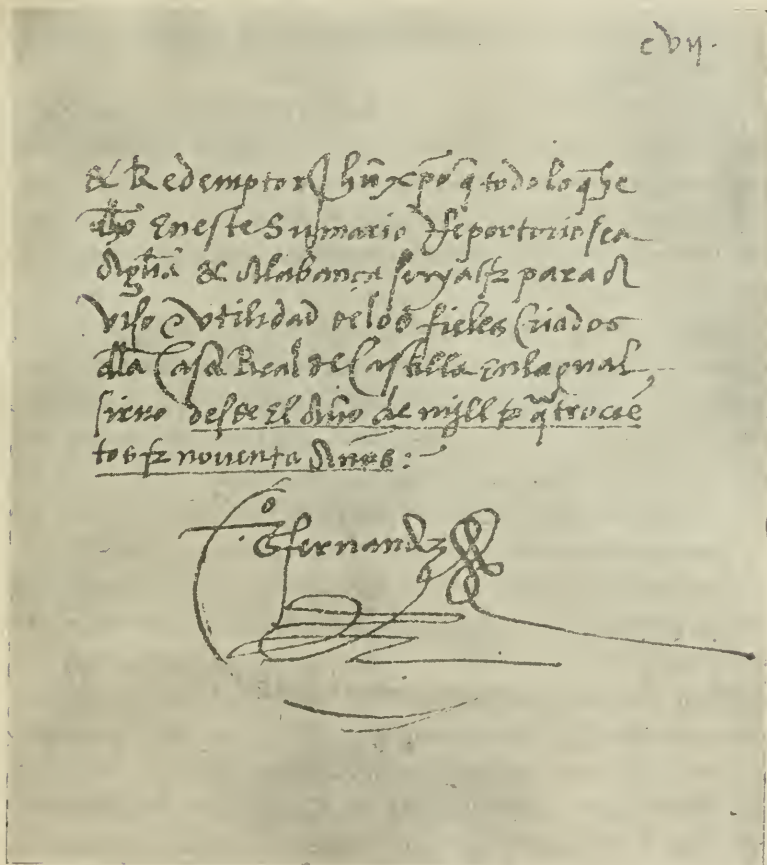 cvij.
& Redemptor Jhũ xp̃o q̃ todo lo q̃ he
dho En este Sumario o Reportorio sea
A gl̃ia & Alabança suya & para el
Vso e vtilidad de los fieles Criados
dla Casa Real de Castilla En la qual
siruo desde El Año de mjll & q̃trociẽ
tos & nouenta Años:
G fernandz